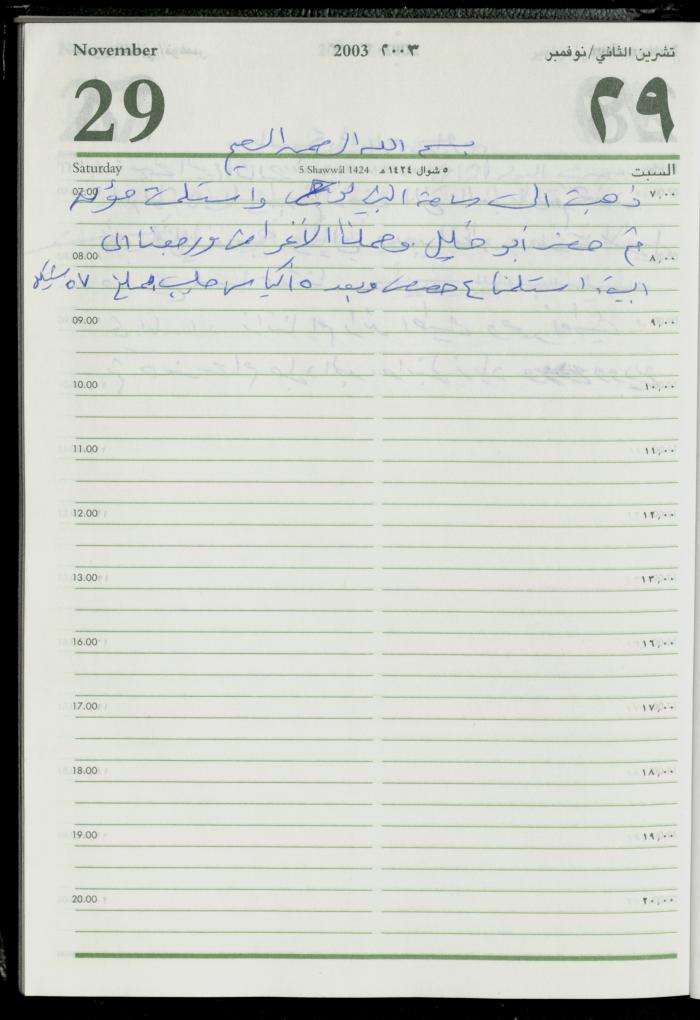 November 2003 ٢٠٠٣ تشرين الثاني/نوفمبر
29 ٢٩
بسم الله الرحمن الرحيم
Saturday 5 Shawwāl 1424 ٥ شوال ١٤٢٤ هـ السبت
07.00 ٧,٠٠
ذهبت الى ساحة واستلمت مؤن
ثم حضر ابو خليل وحملنا الأغراض ورجعنا الى
08.00 ٨,٠٠
البيت استلمنا ٤ حصص وبعد ٥ اكياس حليب بمبلغ ٥٧ شيكل
09.00 ٩,٠٠
10.00 ١٠,٠٠
11.00 ١١,٠٠
12.00 ١٢,٠٠
13.00 ١٣,٠٠
16.00 ١٦,٠٠
17.00 ١٧,٠٠
18.00 ١٨,٠٠
19.00 ١٩,٠٠
20.00 ٢٠,٠٠